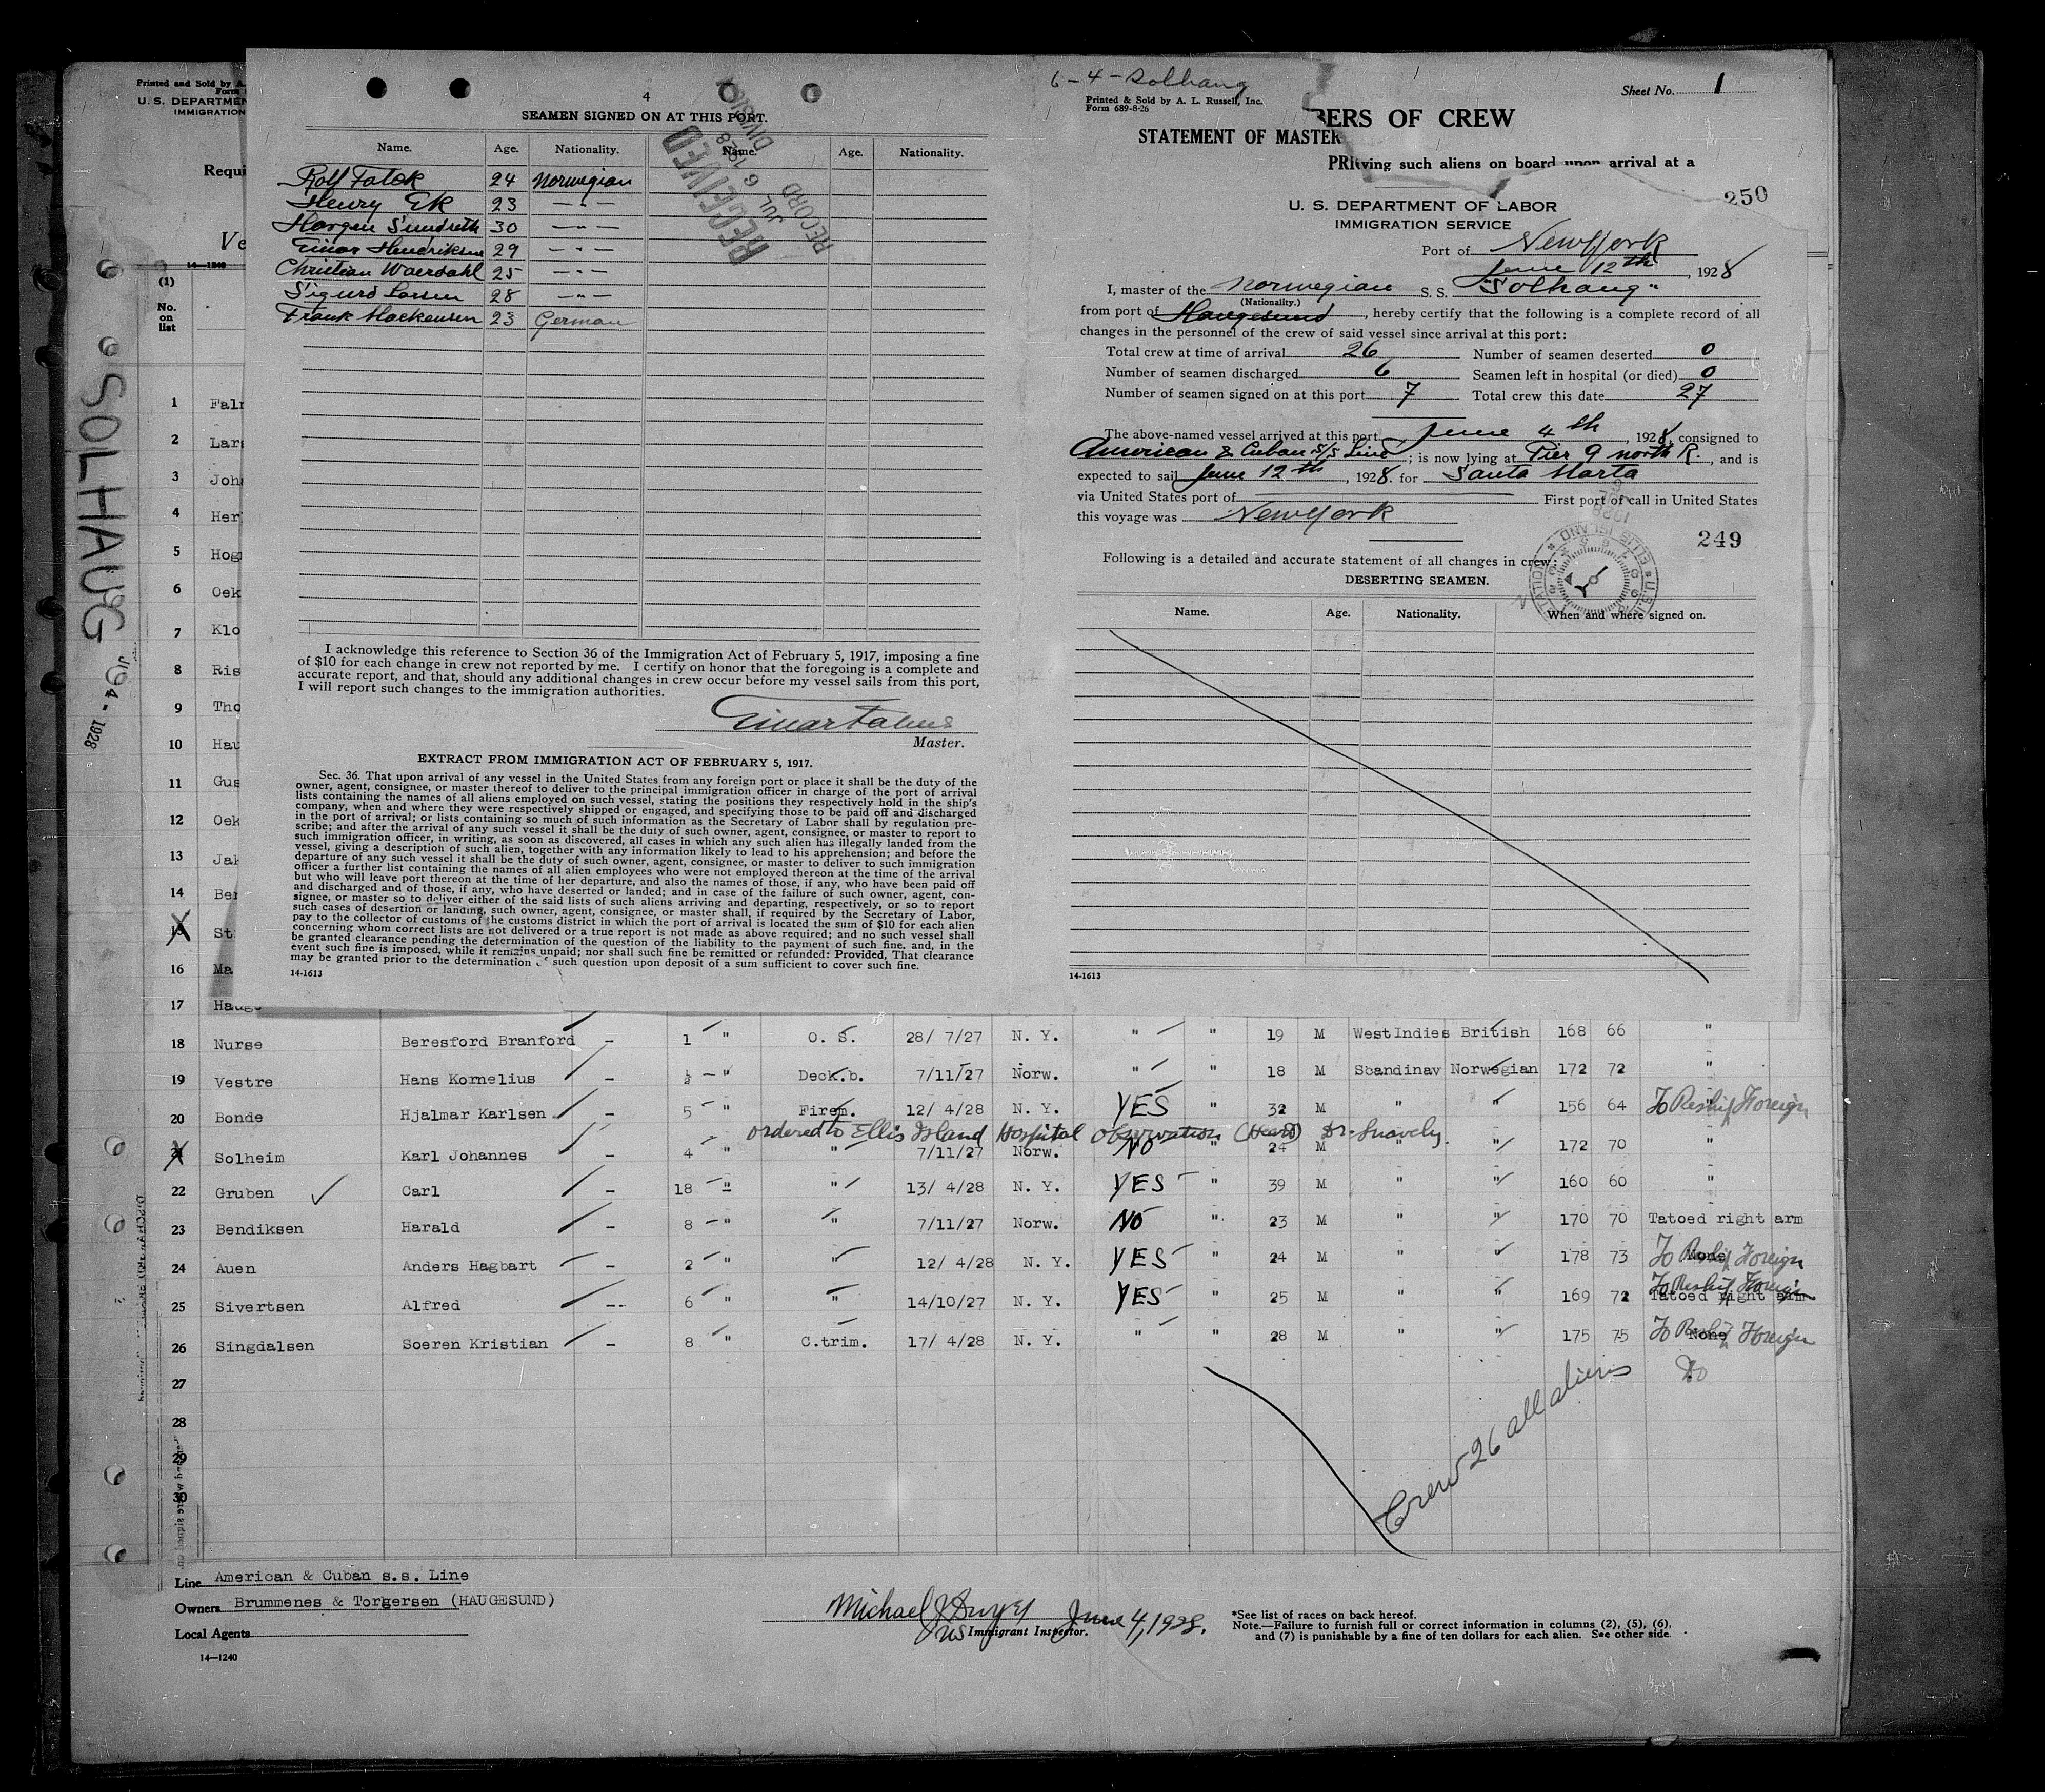 Printed and Sold by A.
Form
U. S. DEPARTMEN
IMMIGRATION
Requi
Ve
14—1240
(1)
No.
on
list
SOLHAUG
4 - 1928
1 Faln
2 Lars
3 John
4 Her
5 Hog
6 Oek
7 Klo
8 Ris
9 Tho
10 Hau
11 Gus
12 Oek
13 Jak
14 Ber
15 St
16 Ma
17 Hauge
4
SEAMEN SIGNED ON AT THIS PORT.
RECEIVED
JUL 6 1928
RECORD DIVISION
Name. Age. Nationality. Name. Age. Nationality.
Rolf Falck 24 Norwegian
Henry Ek 23 — " —
Horgen Sundseth 30 — " —
Einar Hendriksen 29 — " —
Christian Waerdahl 25 — " —
Sigurd Larsen 28 — " —
Frank Mackensen 23 German
I acknowledge this reference to Section 36 of the Immigration Act of February 5, 1917, imposing a fine
of $10 for each change in crew not reported by me. I certify on honor that the foregoing is a complete and
accurate report, and that, should any additional changes in crew occur before my vessel sails from this port,
I will report such changes to the immigration authorities.
Einar Falnes
Master.
EXTRACT FROM IMMIGRATION ACT OF FEBRUARY 5, 1917.
Sec. 36. That upon arrival of any vessel in the United States from any foreign port or place it shall be the duty of the
owner, agent, consignee, or master thereof to deliver to the principal immigration officer in charge of the port of arrival
lists containing the names of all aliens employed on such vessel, stating the positions they respectively hold in the ship's
company, when and where they were respectively shipped or engaged, and specifying those to be paid off and discharged
in the port of arrival; or lists containing so much of such information as the Secretary of Labor shall by regulation pre-
scribe; and after the arrival of any such vessel it shall be the duty of such owner, agent, consignee, or master to report to
such immigration officer, in writing, as soon as discovered, all cases in which any such alien has illegally landed from the
vessel, giving a description of such alien, together with any information likely to lead to his apprehension; and before the
departure of any such vessel it shall be the duty of such owner, agent, consignee, or master to deliver to such immigration
officer a further list containing the names of all alien employees who were not employed thereon at the time of the arrival
but who will leave port thereon at the time of her departure, and also the names of those, if any, who have been paid off
and discharged and of those, if any, who have deserted or landed; and in case of the failure of such owner, agent, con-
signee, or master so to deliver either of the said lists of such aliens arriving and departing, respectively, or so to report
such cases of desertion or landing, such owner, agent, consignee, or master shall, if required by the Secretary of Labor,
pay to the collector of customs of the customs district in which the port of arrival is located the sum of $10 for each alien
concerning whom correct lists are not delivered or a true report is not made as above required; and no such vessel shall
be granted clearance pending the determination of the question of the liability to the payment of such fine, and, in the
event such fine is imposed, while it remains unpaid; nor shall such fine be remitted or refunded: Provided, That clearance
may be granted prior to the determination of such question upon deposit of a sum sufficient to cover such fine.
14-1613
6 - 4 - Solhaug
Printed & Sold by A. L. Russell, Inc.
Form 689-8-26
Sheet No. 1
BERS OF CREW
STATEMENT OF MASTER
PRI
ving such aliens on board upon arrival at a
250
U. S. DEPARTMENT OF LABOR
IMMIGRATION SERVICE
Port of New York
June 12th, 1928
I, master of the Norwegian S. S. "Solhaug"
(Nationality.)
from port of Haugesund, hereby certify that the following is a complete record of all
changes in the personnel of the crew of said vessel since arrival at this port:
Total crew at time of arrival 26 Number of seamen deserted 0
Number of seamen discharged 6 Seamen left in hospital (or died) 0
Number of seamen signed on at this port 7 Total crew this date 27
The above-named vessel arrived at this port June 4th, 1928, consigned to
American & Cuban S/S Line; is now lying at Pier 9 north R., and is
expected to sail June 12th, 1928. for Santa Marta
via United States port of First port of call in United States
this voyage was New York
249
Following is a detailed and accurate statement of all changes in crew:
DESERTING SEAMEN.
Name. Age. Nationality. When and where signed on.
14-1613
18 Nurse Beresford Branford — 1 " O. S. 28/ 7/27 N. Y. " " 19 M WestIndies British 168 66 "
19 Vestre Hans Kornelius — " Deck.b. 7/11/27 Norw. " " 18 M Scandinav Norwegian 172 72 "
20 Bonde Hjalmar Karlsen — 5 " Firem. 12/ 4/28 N. Y. YES " 32 M " " 156 64 To Reship Foreign
ordered to Ellis Island Hospital Observation (Heart) Dr. Snavely.
21 Solheim Karl Johannes — 4 " " 7/11/27 Norw. NO " 24 M " " 172 70 "
22 Gruben Carl — 18 " " 13/ 4/28 N. Y. YES " 39 M " " 160 60 "
23 Bendiksen Harald — 8 " " 7/11/27 Norw. NO " 23 M " " 170 70 Tatoed right arm
24 Auen Anders Hagbart — 2 " " 12/ 4/28 N. Y. YES " 24 M " " 178 73 None To Reship Foreign
25 Sivertsen Alfred -- 6 " " 14/10/27 N. Y. YES " 25 M " " 169 72 Tatoed right arm To Reship Foreign
26 Singdalsen Soeren Kristian — 8 " C.trim. 17/ 4/28 N. Y. " " 28 M " " 175 75 None To Reship Foreign
27 Do
28
29
30
Crew 26 all aliens
Line American & Cuban s.s. Line
Owners Brummenes & Torgersen (HAUGESUND)
Local Agents
14—1240
Michael J Dwyer June 4, 1928.
US Immigrant Inspector.
*See list of races on back hereof.
Note.—Failure to furnish full or correct information in columns (2), (5), (6),
and (7) is punishable by a fine of ten dollars for each alien. See other side.